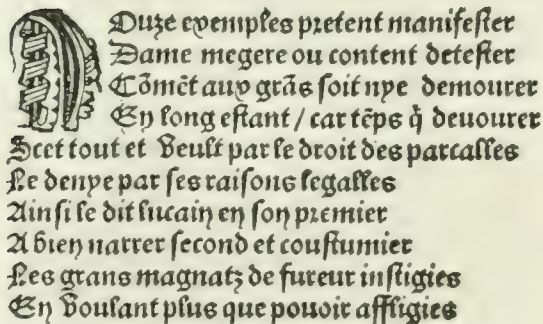 Douze exemples pretent manifester
Dame megere ou content detester
Cõmẽt aux grãs soit nye demourer
En long estant / car tẽps q̃ deuourer
Scet tout et Veult par le droit des parcalles
Le denye par ses raisons legalles
Ainsi le dit lucain en son premier
A bien narrer fecond et coustumier
Les grans magnatz de fureur instigies
En Voulant plus que pouoir affligies